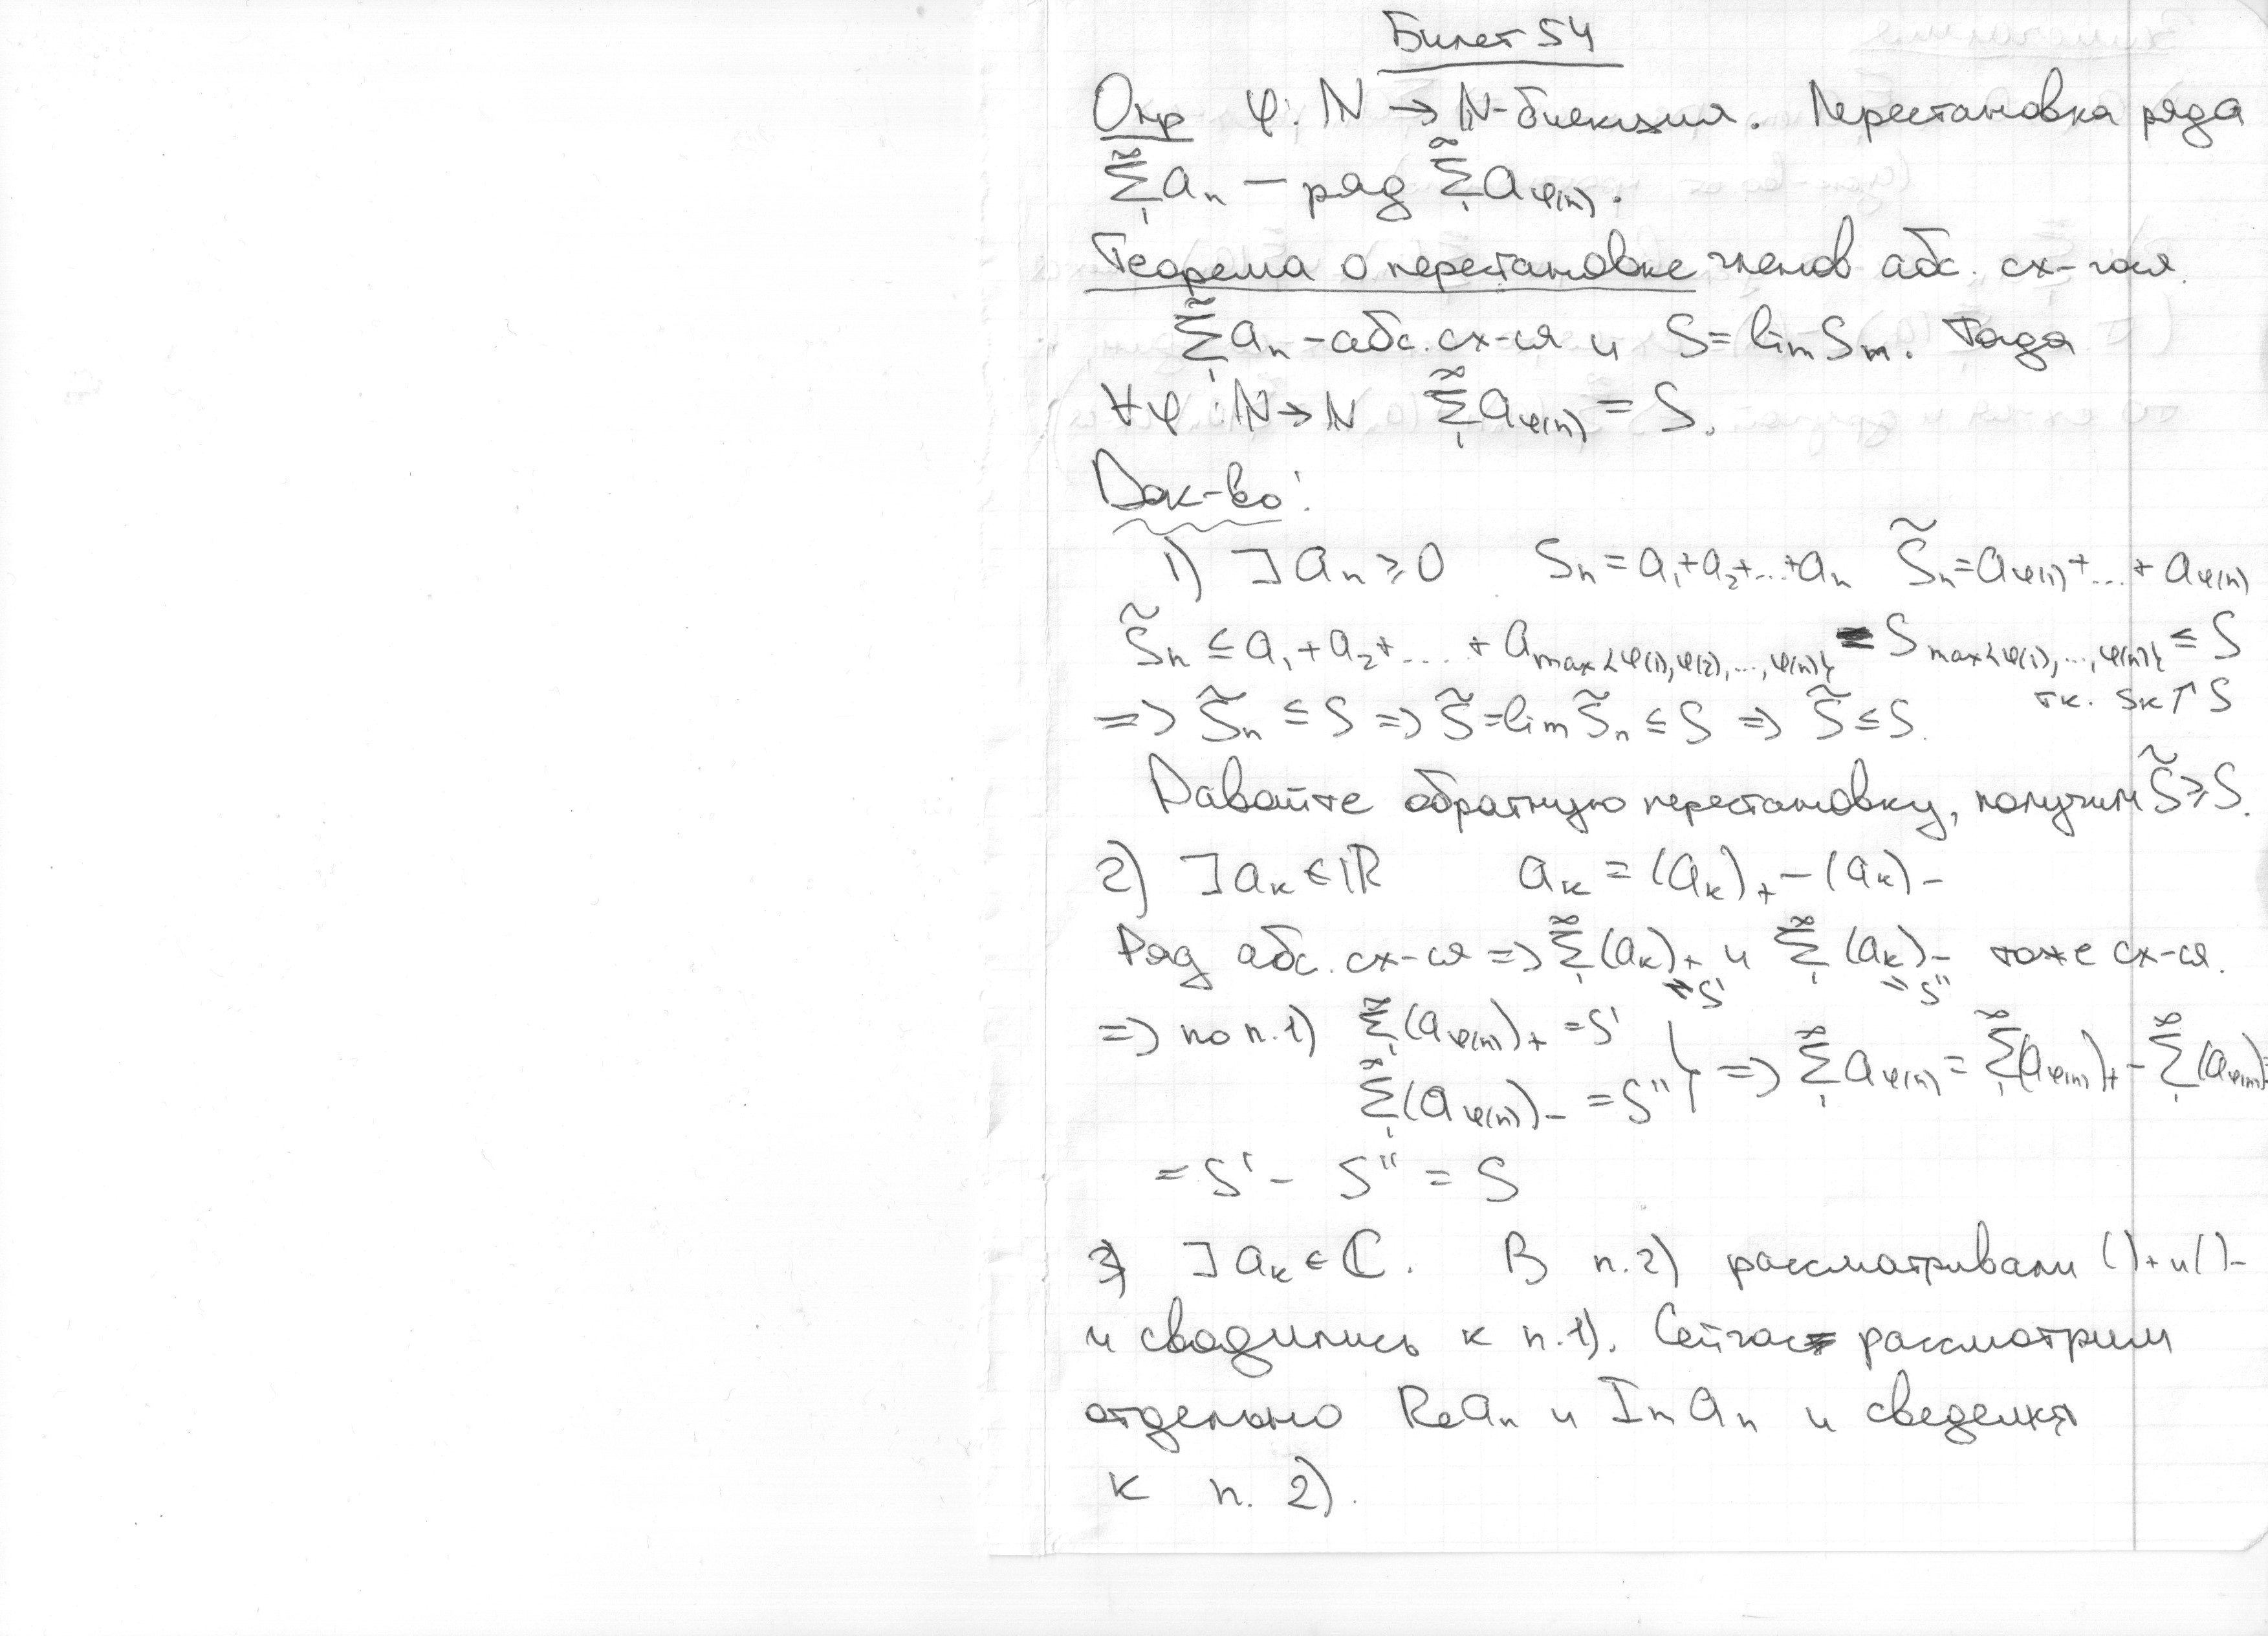 Билет 54
Опр φ: ℕ → ℕ - биекция. Перестановка ряда
∑₁^∞ aₙ — ряд ∑₁^∞ a_φ(n).
Теорема о перестановке членов абс. сх-гося.
∑₁^∞ aₙ - абс. сх-ся и S = lim Sₘ. Тогда
∀φ: ℕ → ℕ ∑₁^∞ a_φ(n) = S.
Док-во:
1) ∃ aₙ ⩾ 0 Sₙ = a₁+a₂+...+aₙ S̃ₙ = a_φ(1)+...+ a_φ(n)
S̃ₙ ≤ a₁+a₂+...+ a_max{φ(1),φ(2),...,φ(n)} = S_max{φ(1),...,φ(n)} ≤ S
т.к. Sₖ↑S
=> S̃ₙ ≤ S => S̃ = lim S̃ₙ ≤ S => S̃ ≤ S.
Давайте обратную перестановку, получим S̃ ⩾ S.
2) ∃ aₖ ∈ ℝ aₖ = (aₖ)₊ - (aₖ)₋
Ряд абс. сх-ся => ∑₁^∞ (aₖ)₊ и ∑₁^∞ (aₖ)₋ тоже сх-ся.
= S' = S''
=> по п.1) ∑₁^∞ (a_φ(n))₊ = S'
∑₁^∞ (a_φ(n))₋ = S'' } => ∑₁^∞ a_φ(n) = ∑₁^∞ (a_φ(n))₊ - ∑₁^∞ (a_φ(n))₋
= S' - S'' = S
3) ∃ aₖ ∈ ℂ. В п.2) рассматривали ()₊ и ()₋
и сводились к п.1). Сейчас рассмотрим
отдельно Re aₙ и Im aₙ и сведемся
к п. 2).